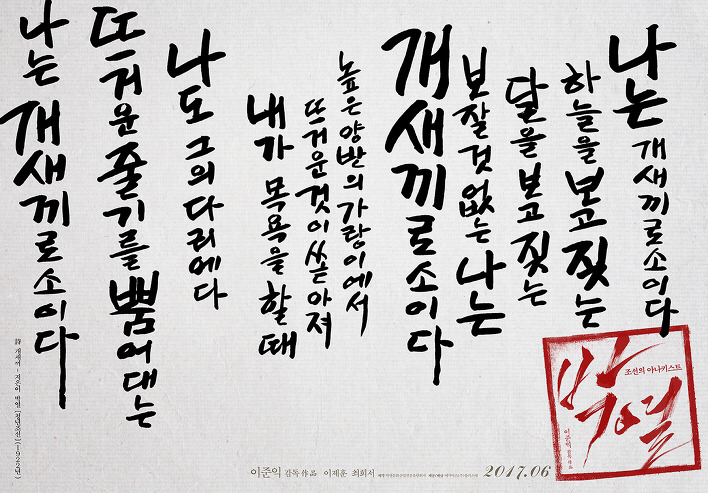 나는 개새끼로소이다
하늘을 보고 짖는
달을 보고 짖는
보잘것없는 나는
개새끼로소이다
높은 양반의 가랑이에서
뜨거운 것이 쏟아져
내가 목욕을 할 때
나도 그의 다리에다
뜨거운 줄기를 뿜어대는
나는 개새끼로소이다
詩 개새끼 - 지은이 박열 [청년조선] (1922년)
박열
조선의 아나키스트
이준익 감독 作品
이준익 감독 作品 이제훈 최희서
2017.06